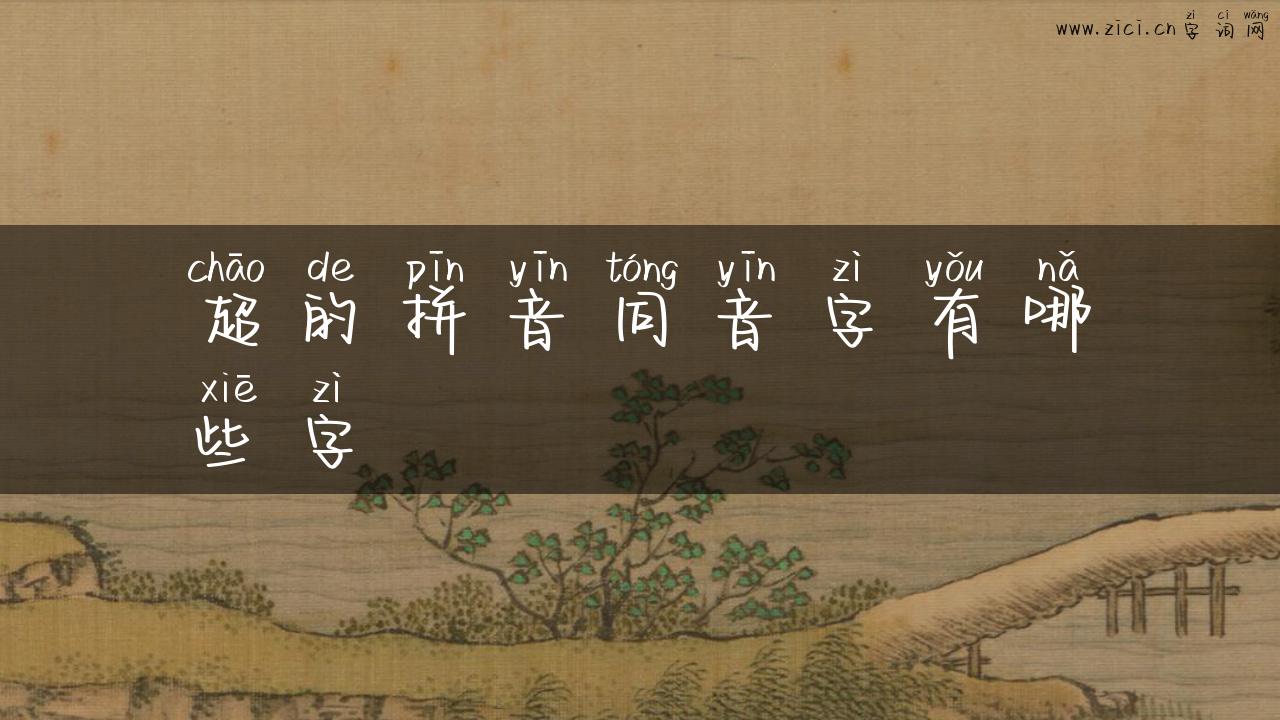 zì cí wǎng
www.zici.cn字词网
chāo de pīn yīn tóng yīn zì yǒu nǎ
超的拼音同音字有哪
xiē zì
些字